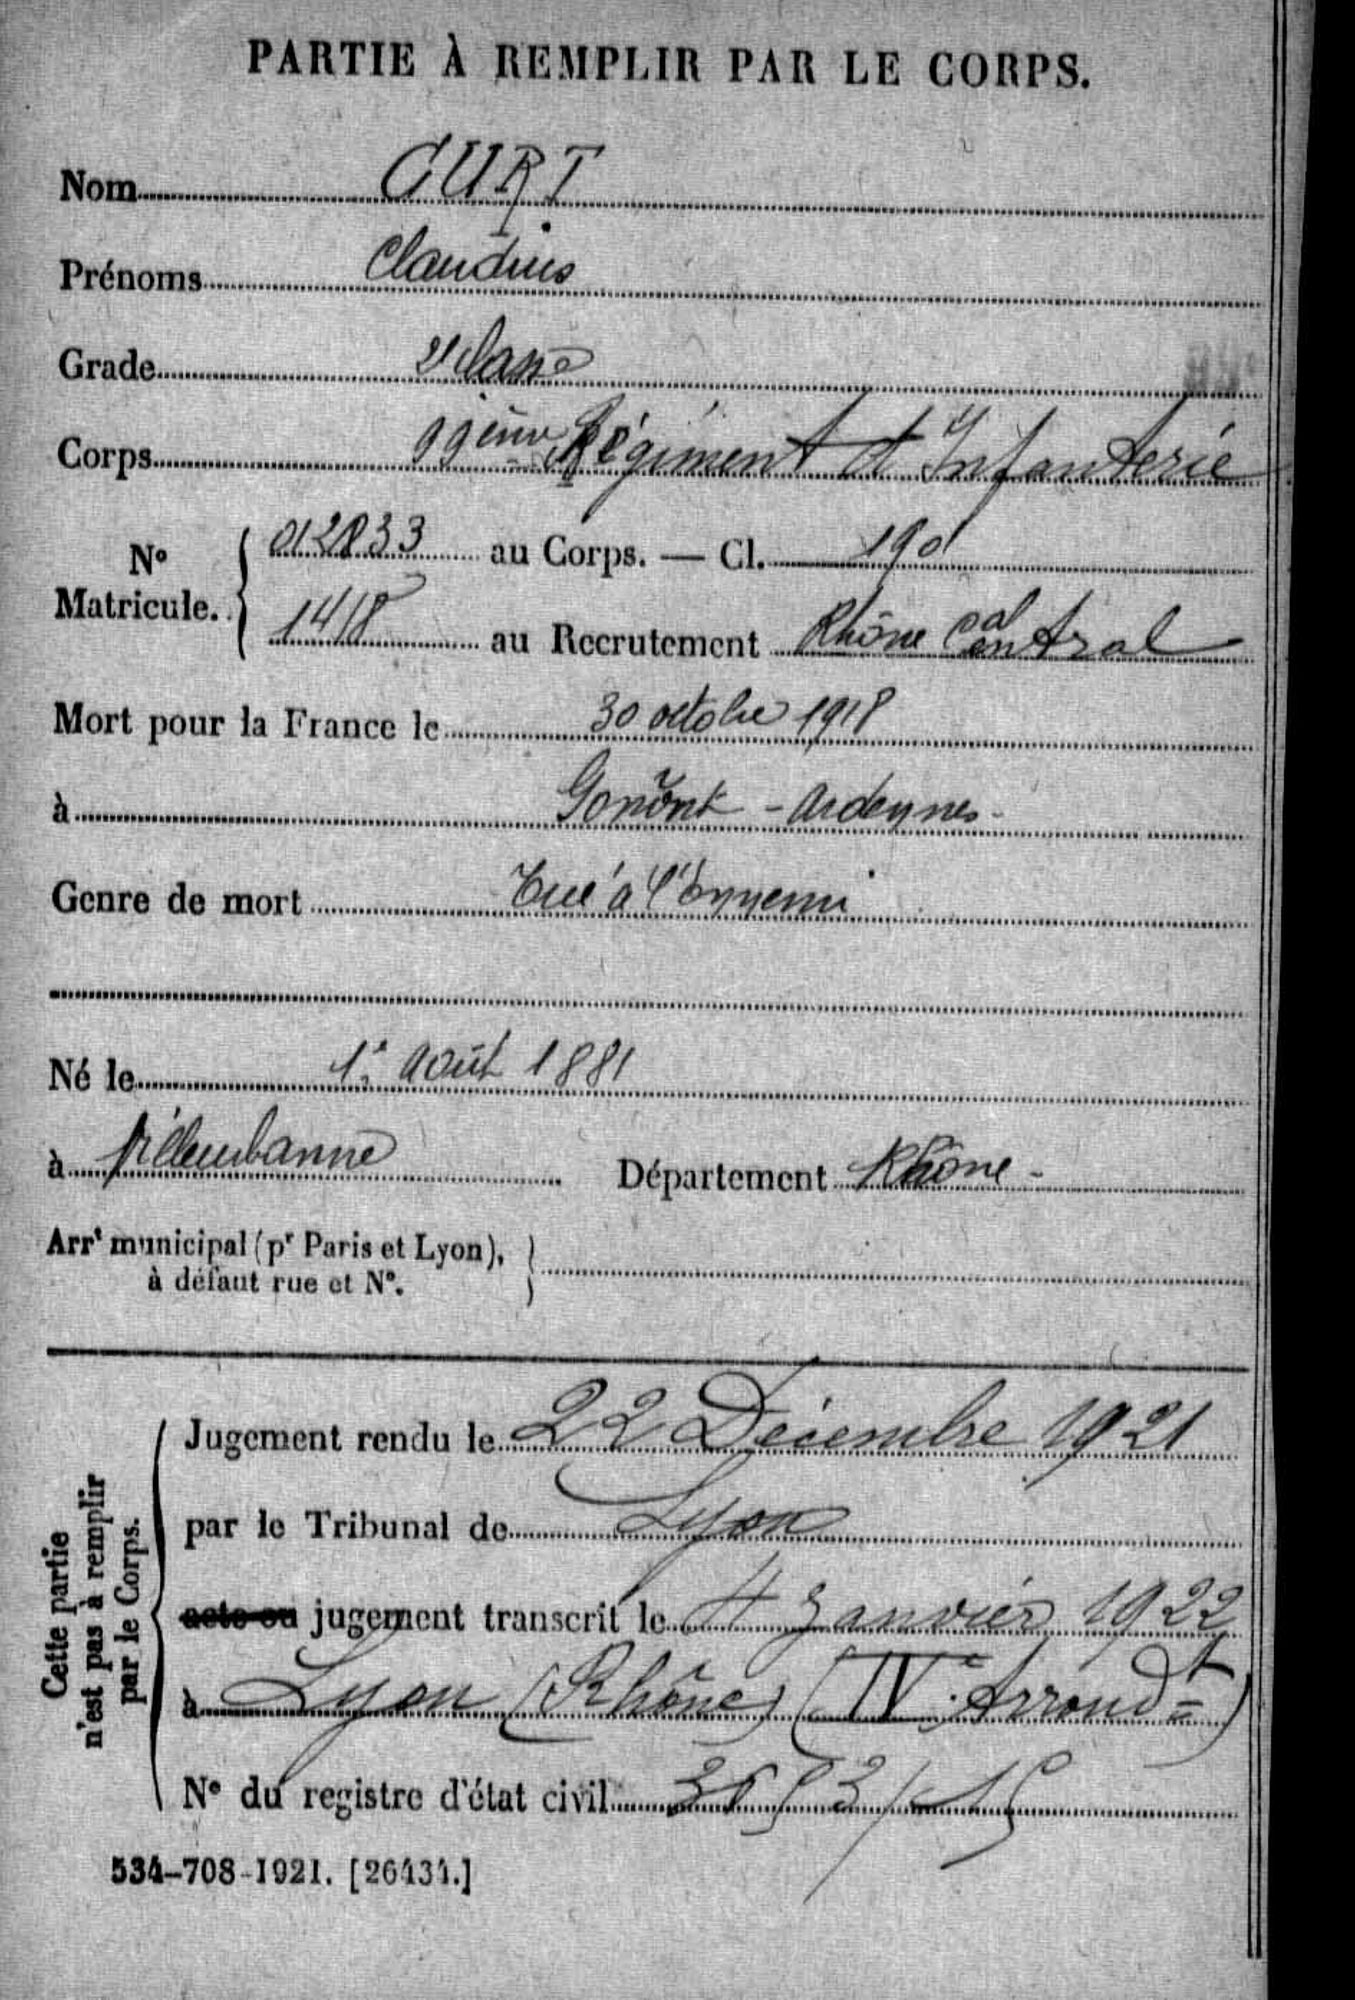 PARTIE À REMPLIR PAR LE CORPS.
Nom CURT
Prénoms Claudius
Grade 2e classe
Corps 99ème Régiment d'Infanterie
No Matricule. 012833 au Corps. — Cl. 1901
1418 au Recrutement Rhône Central
Mort pour la France le 30 octobre 1918
à - Ardennes -
Genre de mort Tué à l'Ennemi
Né le 1er août 1881
à Villeurbanne Département Rhône -
Arrt municipal (pr Paris et Lyon), à défaut rue et No.
Cette partie n'est pas à remplir par le Corps.
Jugement rendu le 22 Décembre 1921
par le Tribunal de Lyon
acte ou jugement transcrit le 4 Janvier 1922
à Lyon (Rhône) (IVe Arrondt)
No du registre d'état civil
534-708-1921. [26434.]